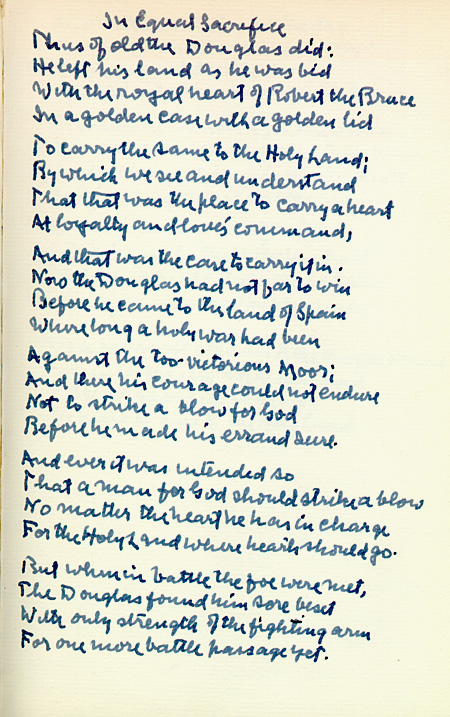 In Equal Sacrifice
Thus of old the Douglas did:
He left his land as he was bid
With the royal heart of Robert the Bruce
In a golden case with a golden lid
To carry the same to the Holy Land;
By which we see and understand
That that was the place to carry a heart
At loyalty and love's command,
And that was the case to carry it in.
Now the Douglas had not far to win
Before he came to the land of Spain
Where long a holy war had been
Against the too-victorious Moor;
And there his courage could not endure
Not to strike a blow for God
Before he made his errand sure.
And ever it was intended so
That a man for God should strike a blow
No matter the heart he has in charge
For the Holy Land where hearts should go.
But when in battle the foe were met,
The Douglas found him sore beset
With only strength of the fighting arm
For one more battle passage yet.